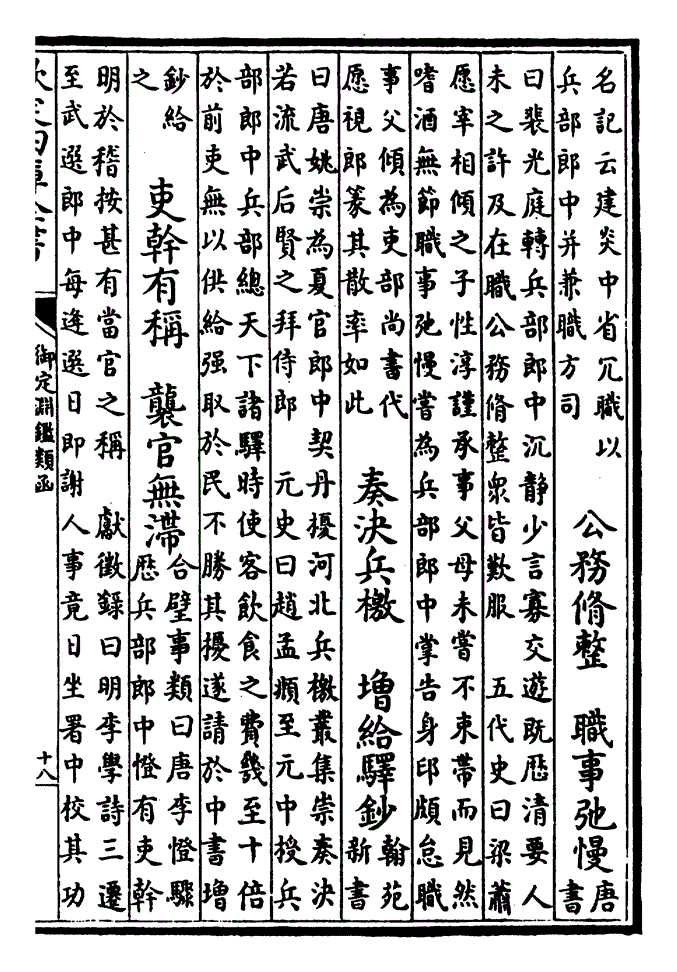 名記云建炎中省冗職以
兵部郎中并兼職方司
公務脩整　職事弛慢
唐
書
曰裴光庭轉兵部郎中沉静少言寡交遊既歷清要人
未之許及在職公務脩整衆皆歎服　五代史曰梁蕭
愿宰相傾之子性淳謹承事父母未嘗不束帶而見然
嗜酒無節職事弛慢嘗為兵部郎中掌告身印頗怠職
事父傾為吏部尚書代
愿視郎篆其散率如此
奏決兵檄　增給驛鈔
翰苑
新書
曰唐姚崇為夏官郎中契丹擾河北兵檄叢集崇奏決
若流武后賢之拜侍郎　元史曰趙孟頫至元中授兵
部郎中兵部總天下諸驛時使客飲食之費幾至十倍
於前吏無以供給强取於民不勝其擾遂請於中書增
鈔給
之
吏幹有稱　襲官無滯
合璧事類曰唐李憕驟
歷兵部郎中憕有吏幹
明於稽按甚有當官之稱　獻徵錄曰明李學詩三遷
至武選郎中每逢選日即謝人事竟日坐署中校其功
欽定四庫全書
御定淵鑑類函
十八